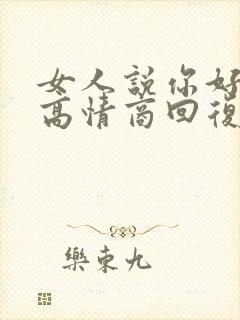 女人說你好
高情商回復
樂東九